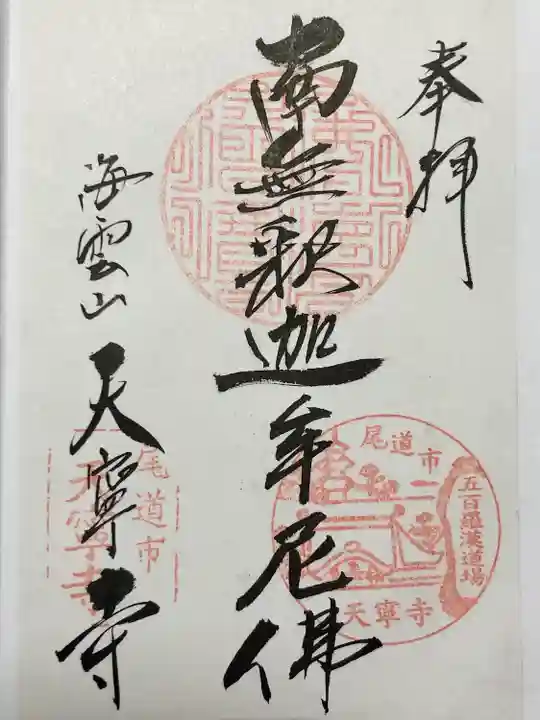 奉拝
南無釈迦牟尼佛
海雲山 天寧寺
尾道市
五百羅漢道場
天寧寺
尾道市
天寧寺